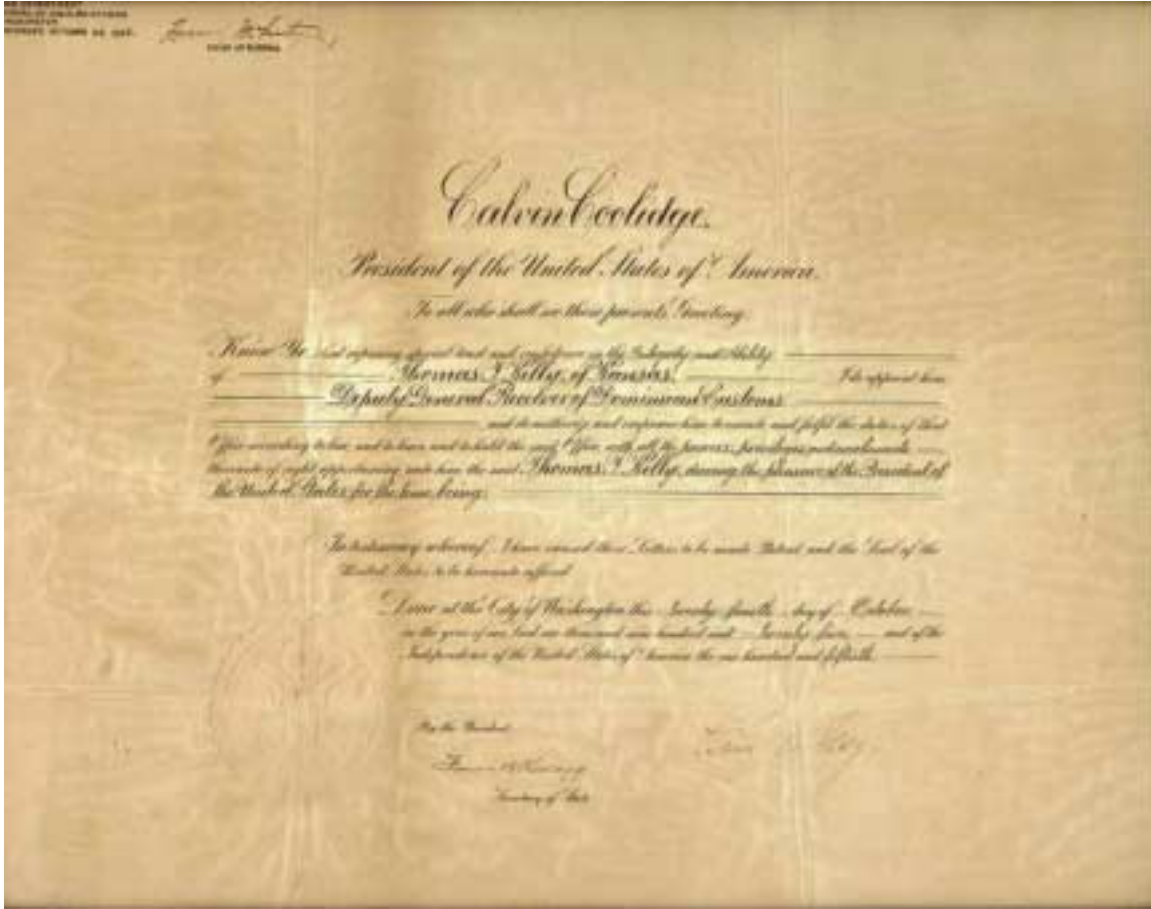 Calvin Coolidge.
President of the United States of America.
To all who shall see these presents, Greeting:
Know Ye, that reposing special trust and confidence in the Integrity and Ability
of Thomas J. Kelly, of Kansas, I do appoint him
Deputy General Receiver of Dominican Customs
and do authorize and empower him to execute and fulfil the duties of that
Office according to law, and to have and to hold the said Office, with all the powers, privileges and emoluments
thereunto of right appertaining unto him the said Thomas J. Kelly, during the pleasure of the President of
the United States for the time being.
In testimony whereof, I have caused these Letters to be made Patent and the Seal of the
United States to be hereunto affixed.
Done at the City of Washington this twenty fourth day of October
in the year of our Lord one thousand nine hundred and twenty five and of the
Independence of the United States of America the one hundred and fiftieth.
By the President:
Secretary of State